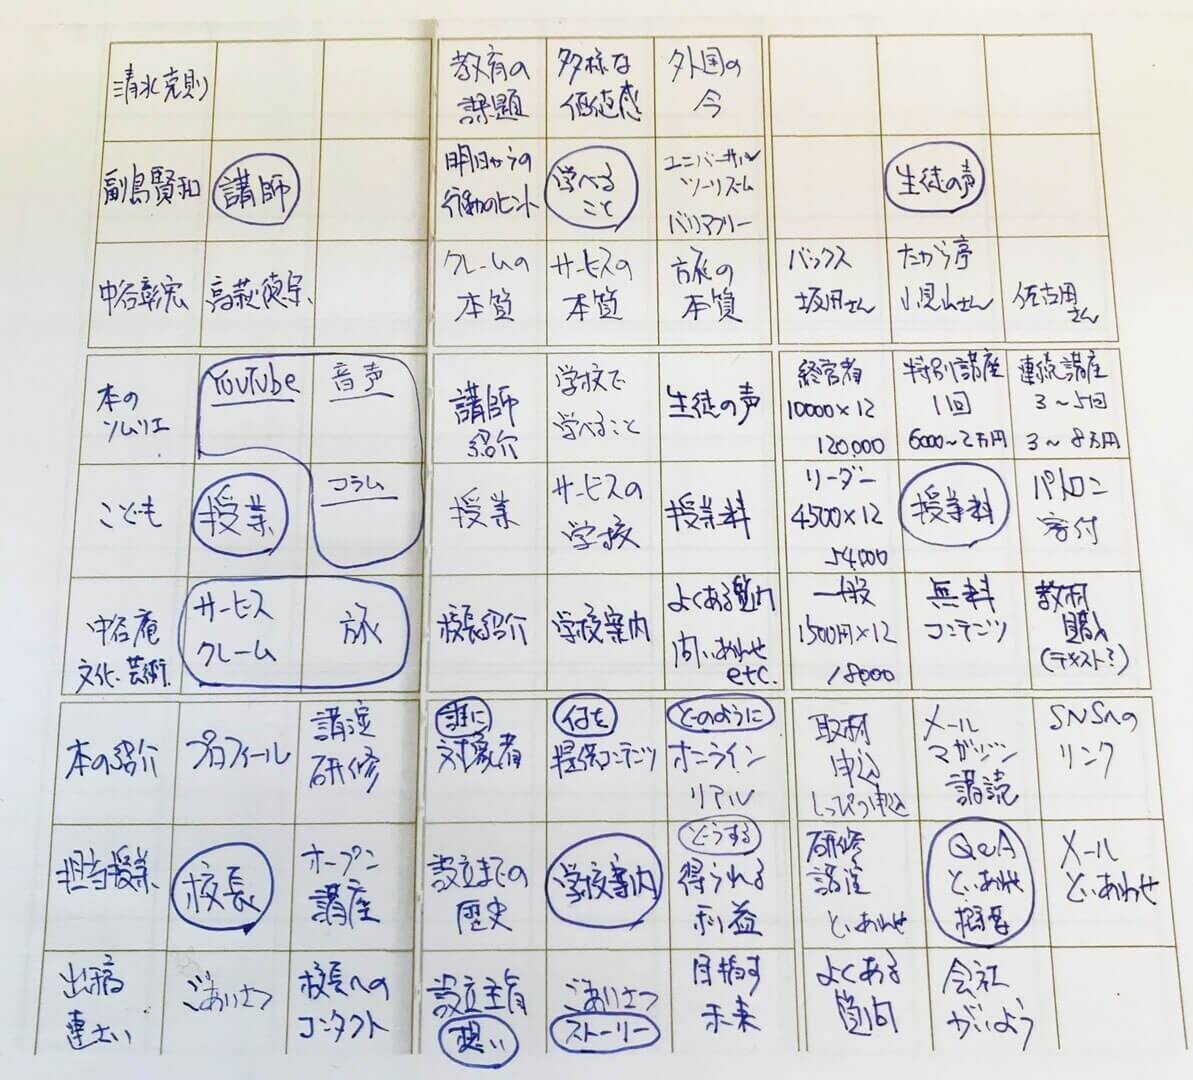 清水克則
教育の
課題
多様な
価値感
外国の
今
副島賢和
講師
明日からの
行動のヒント
学べる
こと
ユニバーサル
ツーリズム
バリアフリー
生徒の声
中谷彰宏
高萩徳宗
クレームの
本質
サービスの
本質
旅の
本質
バックス
坂田さん
たから亭
小見山さん
佐古田
さん
本の
ソムリエ
YouTube
音声
講師
紹介
学校で
学べること
生徒の声
経営者
10000×12
120,000
特別講座
1回
6000~2万円
連続講座
3~5回
3~8万円
こども
授業
コラム
授業
サービスの
学校
授業料
リーダー
4500×12
54,000
授業料
パトロン
寄付
中谷庵
文化、芸術
サービス
クレーム
旅
校長紹介
学校案内
よくある質問
問い合わせ
etc.
一般
1500円×12
18000
無料
コンテンツ
教材
購入
(テキスト?)
本の紹介
プロフィール
講演
研修
誰に
対象者
何を
提供コンテンツ
どのように
オンライン
リアル
取材
申込
しっぴつ申込
メール
マガジン
講読
SNSへの
リンク
担当授業
校長
オープン
講座
設立までの
歴史
学校案内
どうする
得られる
利益
研修
講演
といあわせ
Q&A
といあわせ
概要
メール
といあわせ
出稿
連さい
ごあいさつ
校長への
コンタクト
設立主旨
想い
ごあいさつ
ストーリー
目指す
未来
よくある
質問
会社
がいよう